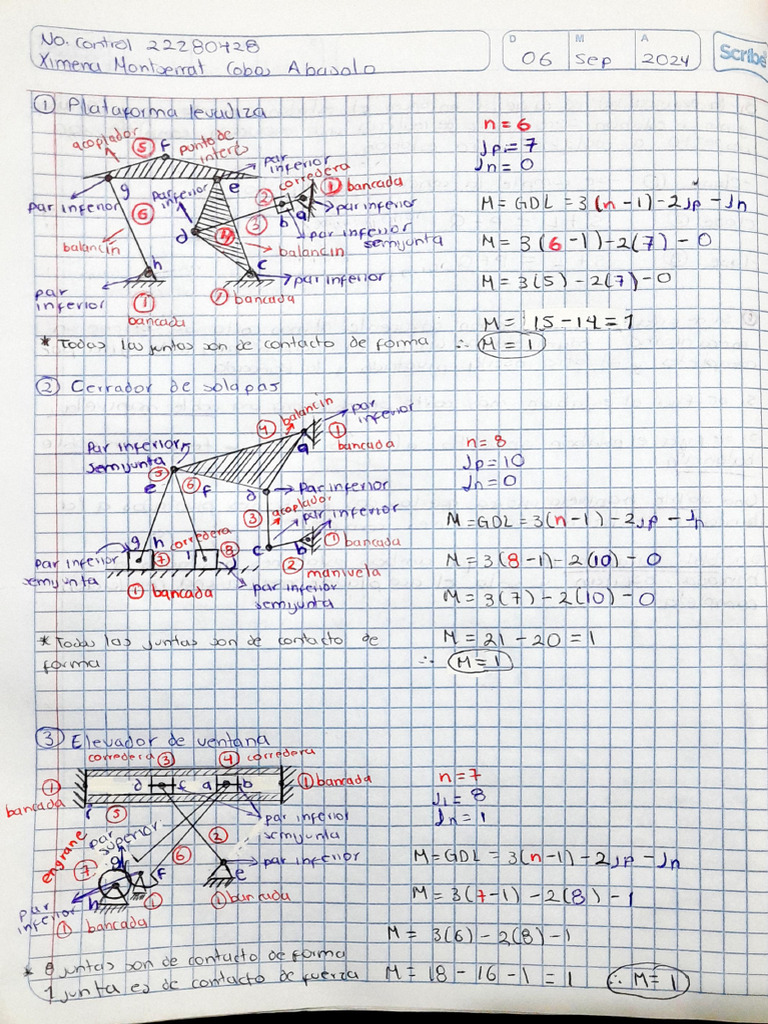 No. Control 22280428
Ximena Montserrat Cobos Abasolo
D M A
06 Sep 2024
Scribe
① Plataforma levadiza
acoplador ⑤ f punto de interés
par inferior
② corredera
① bancada
g e
par inferior
par inferior
b a
par inferior
⑥ d ④ ③
par inferior semijunta
balancín
balancín
h c
par inferior
par inferior
① bancada
① bancada
n = 6
Jp = 7
Jn = 0
M = GDL = 3(n - 1) - 2Jp - Jn
M = 3(6 - 1) - 2(7) - 0
M = 3(5) - 2(7) - 0
M = 15 - 14 = 1
* Todas las juntas son de contacto de forma ∴ M = 1
② Cerrador de solapas
④ balancín
par inferior
① bancada
a
Par inferior semijunta
⑤ e ⑥ f d
Par inferior
③ acoplador
par inferior
g h corredera
⑦ i ⑧ j
c b ① bancada
② manivela
par inferior semijunta
① bancada
par inferior semijunta
n = 8
Jp = 10
Jn = 0
M = GDL = 3(n - 1) - 2Jp - Jn
M = 3(8 - 1) - 2(10) - 0
M = 3(7) - 2(10) - 0
M = 21 - 20 = 1
* Todas las juntas son de contacto de forma
∴ M = 1
③ Elevador de ventana
corredera ③ ④ corredera
① bancada
d c a b
① bancada
⑤
par inferior semijunta
engrane
par superior
②
g ⑥
⑦ f
par inferior
e
h ①
① bancada
par inferior
① bancada
n = 7
J1 = 8
Jn = 1
M = GDL = 3(n - 1) - 2Jp - Jn
M = 3(7 - 1) - 2(8) - 1
M = 3(6) - 2(8) - 1
* 8 juntas son de contacto de forma
1 junta es de contacto de fuerza M = 18 - 16 - 1 = 1 ∴ M = 1